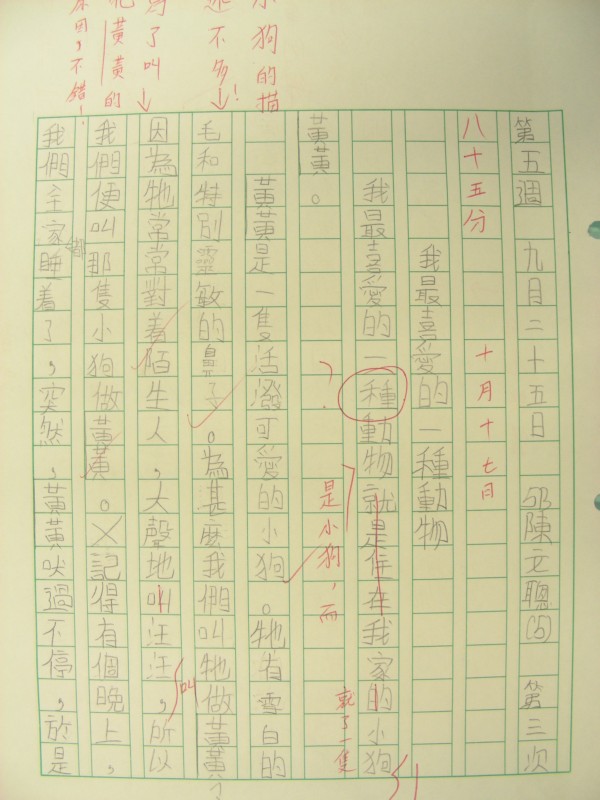 第五週 九月二十五日 5B陳文聰(5) 第三次
八十五分 十月十七日
我最喜愛的一種動物
我最喜愛的一種動物就是住在我家的小狗
?
是小狗,而
黃黃。
黃黃是一隻活潑可愛的小狗。牠有雪白的
毛和特別靈敏的鼻子。為甚麼我們叫牠做黃黃?
因為牠常常對着陌生人,大聲地叫汪汪,所以
叫
我們便叫那隻小狗做黃黃。記得有個晚上,
我們全家都睡着了,突然,黃黃吠過不停,於是
小狗的描
述不多!
寫了叫
牠黃黃的
原因,不錯!